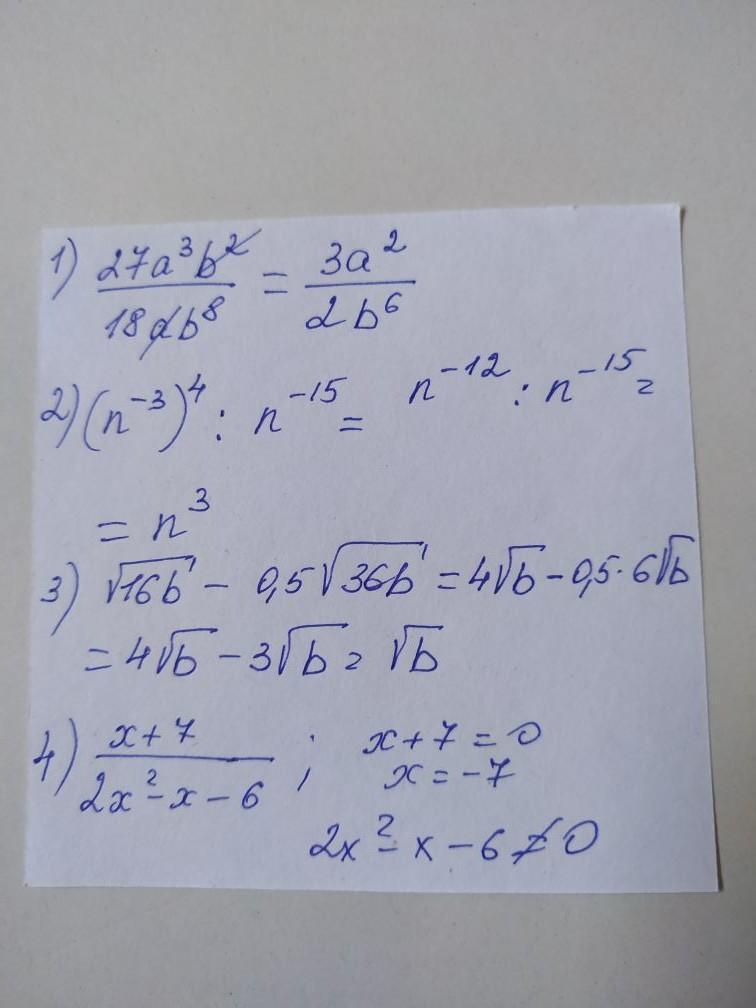 1) 27a³b² / 18ab⁸ = 3a² / 2b⁶
2) (n⁻³)⁴ : n⁻¹⁵ = n⁻¹² : n⁻¹⁵ =
= n³
3) √16b - 0,5√36b = 4√b - 0,5·6√b
= 4√b - 3√b = √b
4) x+7 / 2x²-x-6 ; x+7=0
x=-7
2x²-x-6≠0